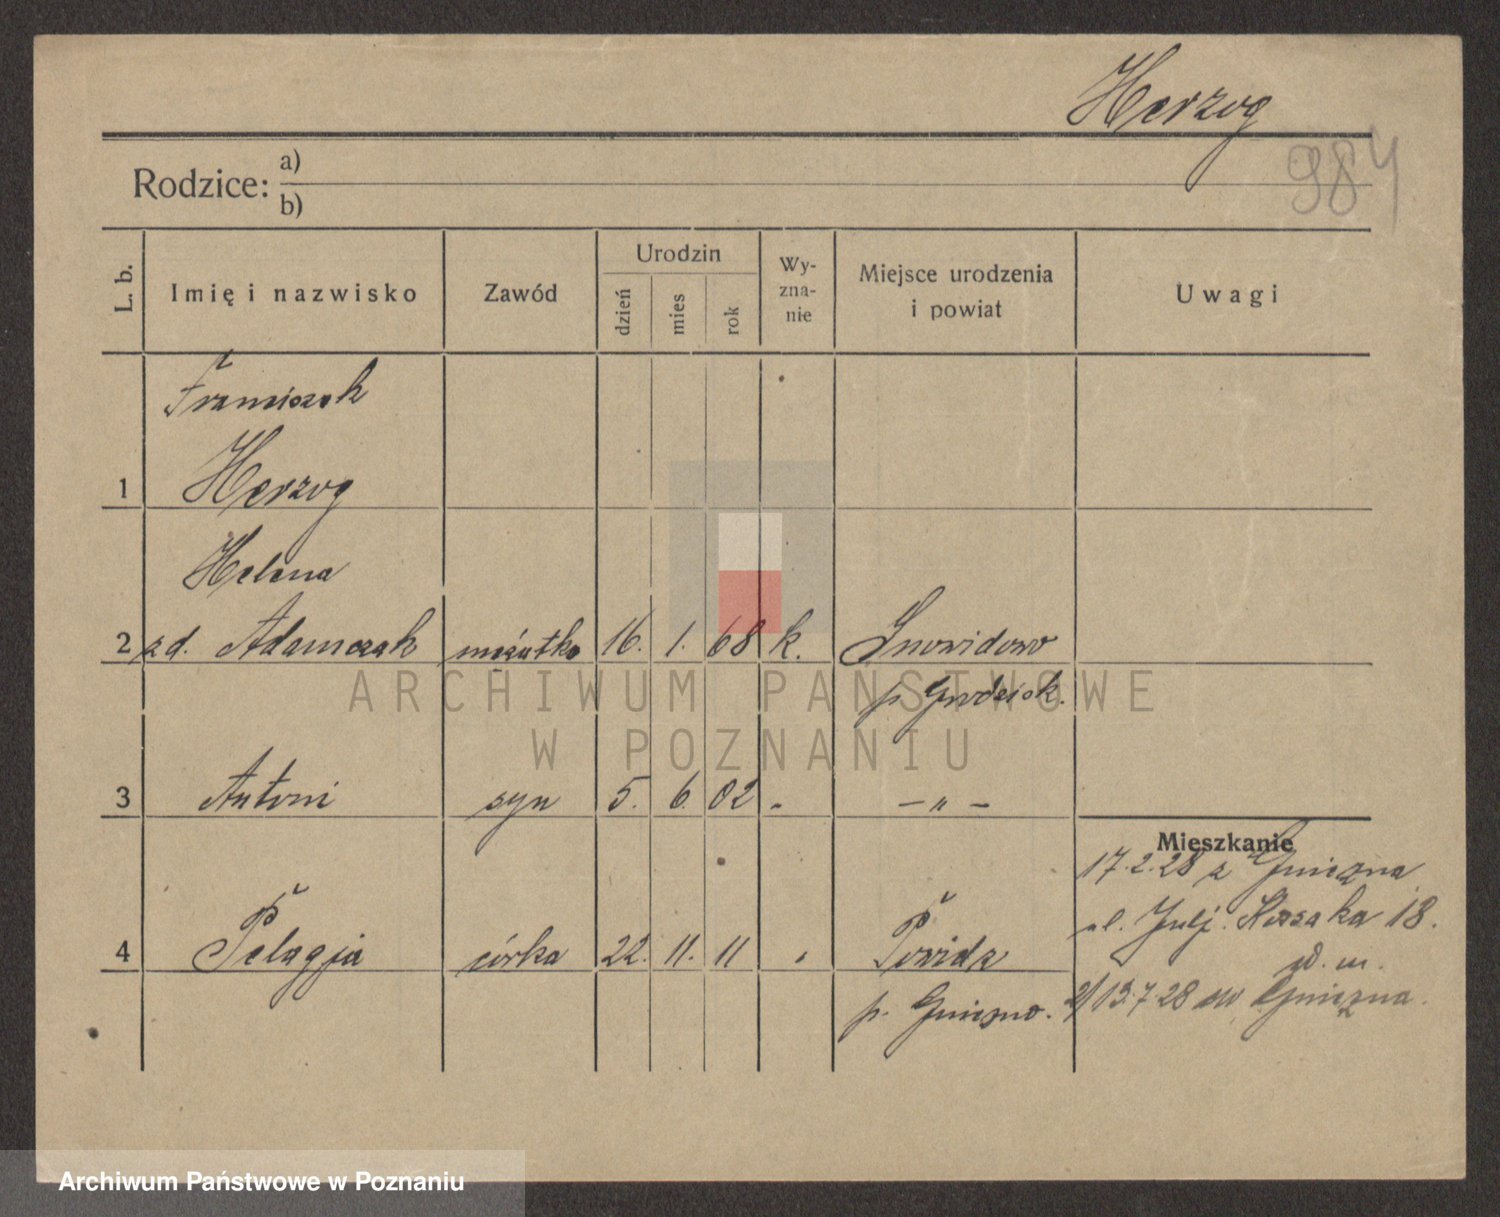 Herzog
984
Rodzice: a)
b)
L. b.
Imię i nazwisko
Zawód
Urodzin
dzień
mies
rok
Wy-
zna-
nie
Miejsce urodzenia
i powiat
Uwagi
Franciszek
1 Herzog
Helena
2 zd. Adamczak mężatka 16. 1. 68 k. Snowidowo
p. Grodzisk.
3 Antoni syn 5. 6. 02 „ — " —
Mieszkanie
17.2.28 z Gniezna
ul. Julj. Kossaka 18.
4 Pelagja córka 22. 11. 11 „ Powidz
w. m.
p. Gniezno. 2/ 13.7.28 do Gniezna.
ARCHIWUM PAŃSTWOWE
W POZNANIU
Archiwum Państwowe w Poznaniu